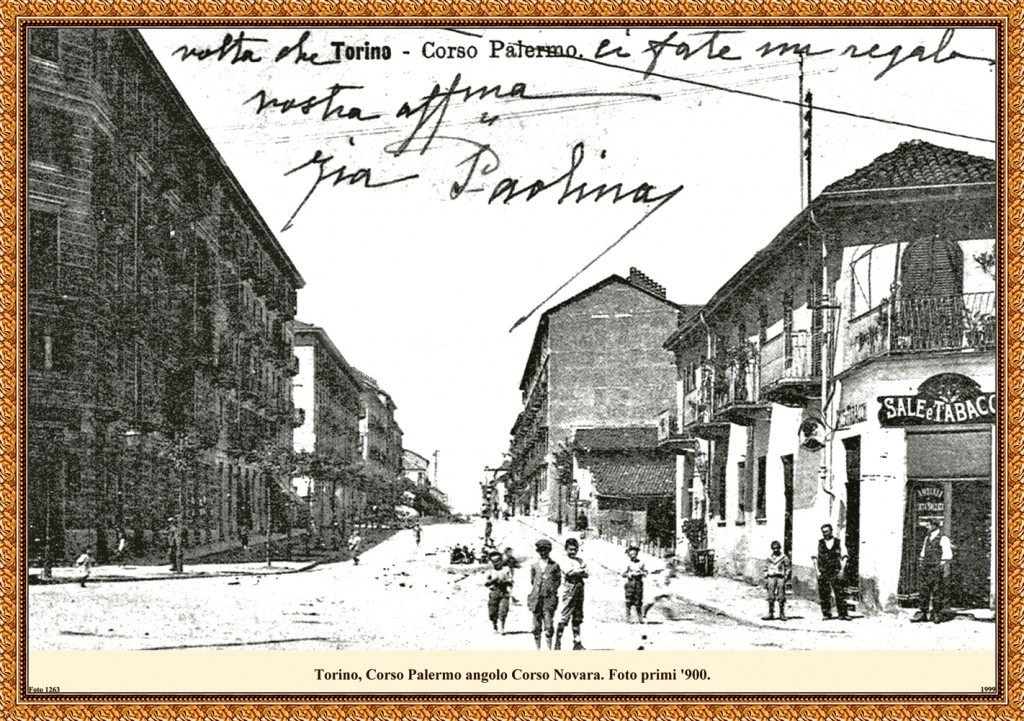 volta che Torino - Corso Palermo. ci fate un regalo
vostra affma
zia Paolina
SALE e TABACC
Torino, Corso Palermo angolo Corso Novara. Foto primi '900.
Foto 1263
1999